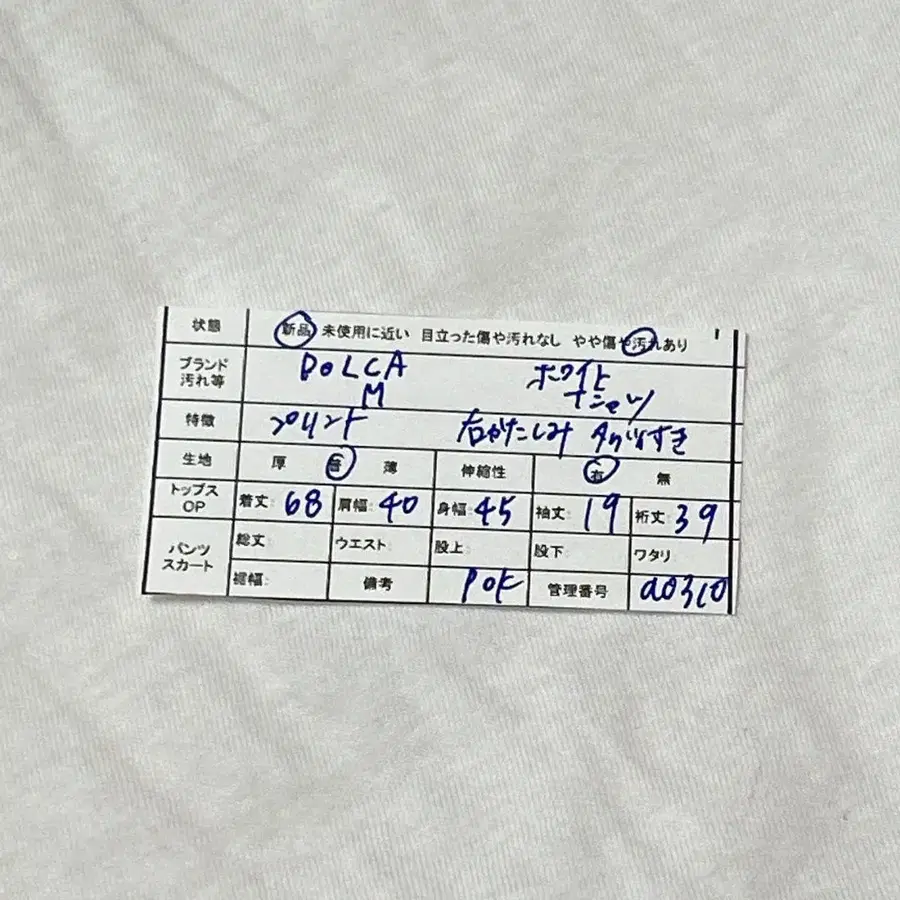 状態 新品 未使用に近い 目立った傷や汚れなし やや傷や汚れあり
ブランド 汚れ等 DOLCA M ホワイト Tシャツ
特徴 プリント 右かたしみ タグうすき
生地 厚 普 薄 伸縮性 有 無
トップス OP 着丈: 68 肩幅: 40 身幅: 45 袖丈: 19 裄丈: 39
パンツ スカート 総丈: ウエスト: 股上: 股下: ワタリ
裾幅: 備考 POK 管理番号 a0310